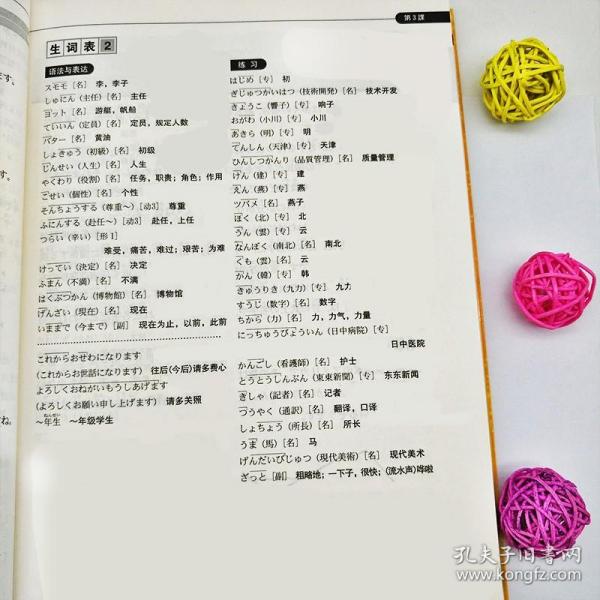 第3課
生词表2
语法与表达
スモモ [名] 李，李子
しゅにん（主任）[名] 主任
ヨット [名] 游艇，帆船
ていいん（定員）[名] 定员，规定人数
バター [名] 黄油
しょきゅう（初級）[名] 初级
じんせい（人生）[名] 人生
やくわり（役割）[名] 任务，职责；角色；作用
こせい（個性）[名] 个性
そんちょうする（尊重～）[动3] 尊重
ふにんする（赴任～）[动3] 赴任，上任
つらい（辛い）[形1]
难受，痛苦，难过；艰苦；为难
けってい（決定）[名] 决定
ふまん（不満）[名] 不满
はくぶつかん（博物館）[名] 博物馆
げんざい（現在）[名] 现在
いままで（今まで）[副] 现在为止，以前，此前
これからおせわになります
(これからお世話になります) 往后(今后)请多费心
よろしくおねがいもうしあげます
(よろしくお願い申し上げます) 请多关照
～年生 ～年级学生
ねんせい
练习
はじめ [专] 初
ぎじゅつかいはつ（技術開発）[名] 技术开发
きょうこ（響子）[专] 响子
おがわ（小川）[专] 小川
あきら（明）[专] 明
てんしん（天津）[专] 天津
ひんしつかんり（品質管理）[名] 质量管理
けん（建）[专] 建
えん（燕）[专] 燕
ツバメ [名] 燕子
ほく（北）[专] 北
うん（雲）[专] 云
なんぼく（南北）[名] 南北
くも（雲）[名] 云
がん（韓）[专] 韩
きゅうりき（九力）[专] 九力
すうじ（数字）[名] 数字
ちから（力）[名] 力，力气，力量
にっちゅうびょういん（日中病院）[专]
日中医院
かんごし（看護師）[名] 护士
とうとうしんぶん（東東新聞）[专] 东东新闻
きしゃ（記者）[名] 记者
つうやく（通訳）[名] 翻译，口译
しょちょう（所長）[名] 所长
うま（馬）[名] 马
げんだいびじゅつ（現代美術）[名] 现代美术
ざっと [副] 粗略地；一下子，很快；(流水声)哗啦
孔夫子旧书网
www.kongfz.com